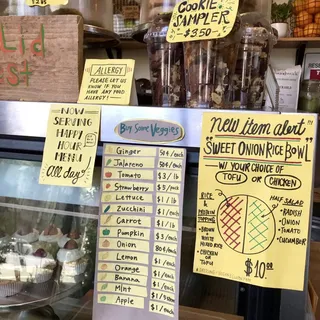 COOKIE
SAMPLER
$3.50
ALLERGY
PLEASE LET US
KNOW IF YOU
HAVE ANY FOOD
ALLERGY!
NOW
SERVING
HAPPY
HOUR
MENU
All day!
Buy Some Veggies
Ginger 50¢/each
Jalapeno 50¢/each
Tomato $3/lb
Strawberry $5/lb
Lettuce $1/lb
Zucchini $1/each
Carrot $1/lb
Pumpkin $3/each
Onion 80¢/each
Lemon $1/each
Orange $1/each
Banana
Mint
Apple $1/each
new item alert"
"SWEET ONION RICE BOWL"
W/ YOUR CHOICE OF
TOFU OR CHICKEN
RICE &
PROTEIN
TOPPING
• BROWN +
WHITE
MIXED RICE
• CHICKEN
OR
TOFU
HALF SALAD
• RADISH
• ONION
• TOMATO
• CUCUMBER
$10.00